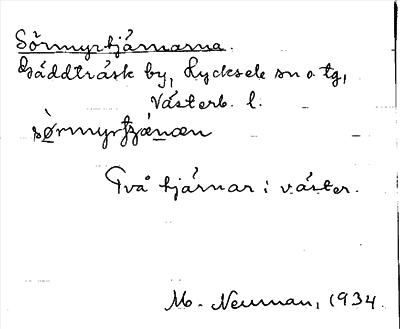 Sörmyrtjärnarna.
Gäddträsk by, Lycksele sn o. tg,
Västerb. l.
sørmyrtjánæn
Två tjärnar i väster.
M. Neuman, 1934.